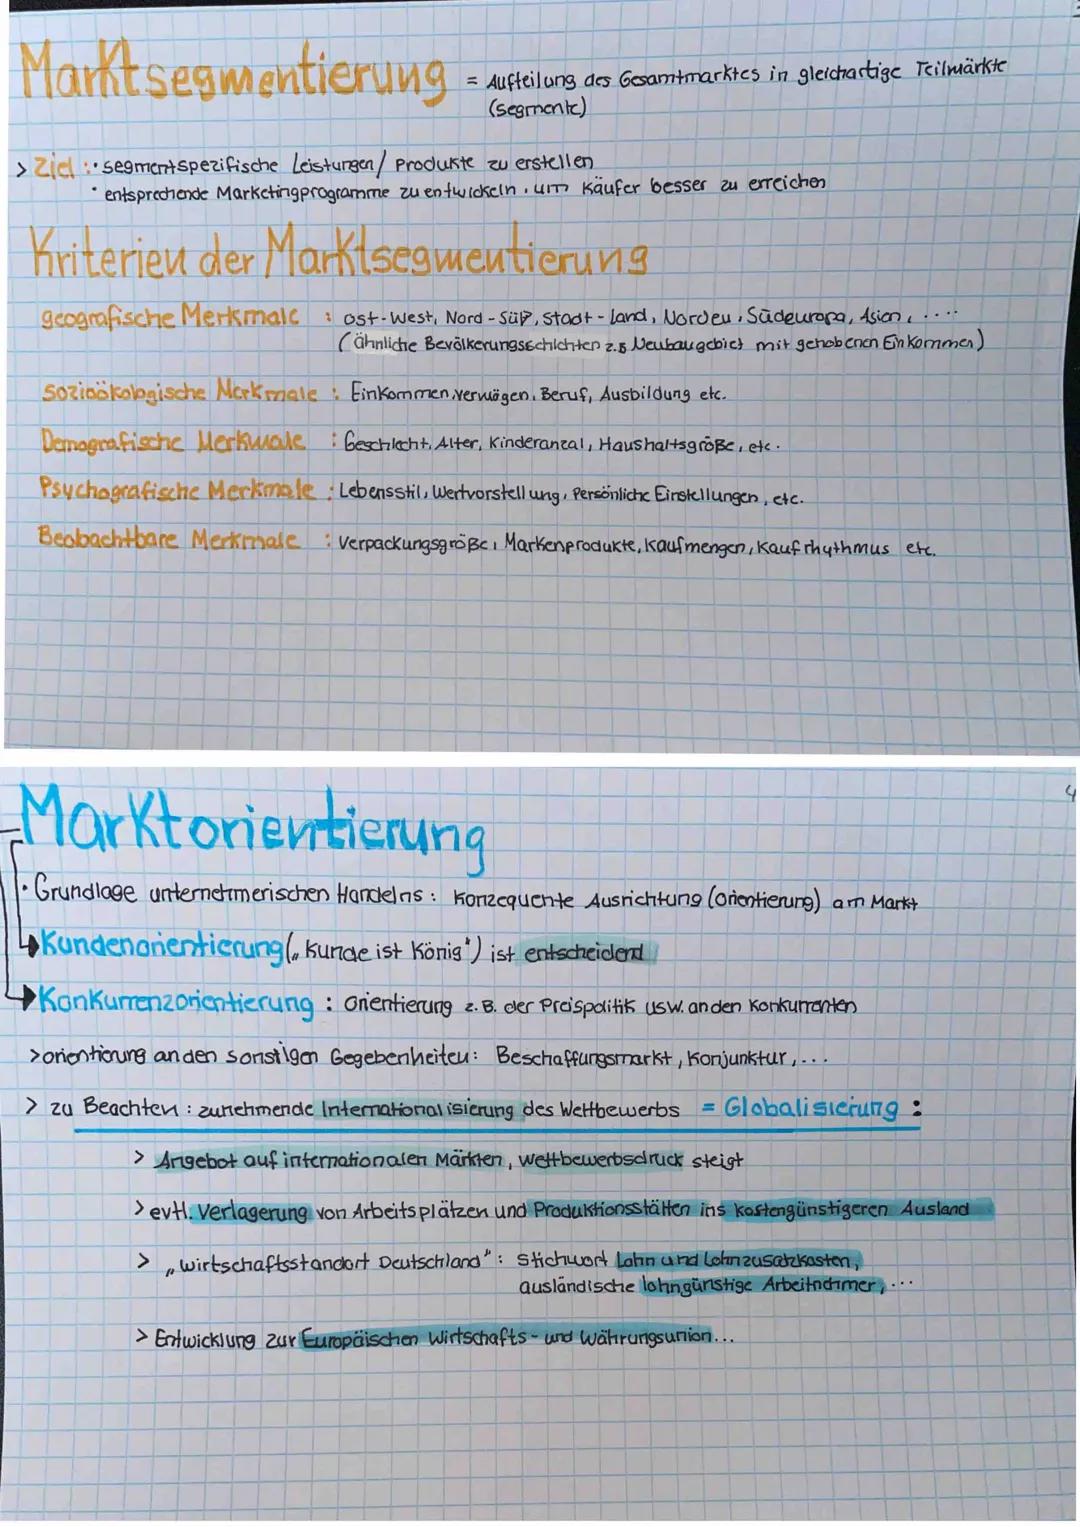 Marktsegmentierung = Aufteilung des Gesamtmarktes in gleichartige Teilmärkte
(segmente)
> Ziel : · segmentspezifische Leistungen/ Produkte zu erstellen
· entsprechende Marketingprogramme zu entwickeln, um Käufer besser zu erreichen
Kriterien der Marktsegmentierung
geografische Merkmale : Ost-West, Nord-Süd, Stadt-Land, Norden, Südeuropa, Asien, ....
(ähnliche Bevölkerungsschichten z.B Neubaugebiet mit gehobenen Einkommen)
Sozioökologische Merkmale : Einkommen, vermögen, Beruf, Ausbildung etc.
Demografische Merkmale : Geschlecht, Alter, Kinderanzal, Haushaltsgröße, etc.
Psychografische Merkmale : Lebensstil, Wertvorstellung, Persönliche Einstellungen, etc.
Beobachtbare Merkmale : Verpackungsgröße, Markenprodukte, Kaufmengen, Kaufrhythmus etc.
4
Marktorientierung
· Grundlage unternehmerischen Handelns : Konzequente Ausrichtung (Orientierung) am Markt
Kundenorientierung („Kunde ist König") ist entscheidend
Konkurrenzorientierung : Orientierung z.B. der Preispolitik usw. an den Konkurrenten
> orientierung an den sonstigen Gegebenheiten: Beschaffungsmarkt, Konjunktur, ...
> zu Beachten : zunehmende Internationalisierung des Wettbewerbs = Globalisierung :
> Angebot auf internationalen Märkten, Wettbewerbsdruck steigt
> evtl. Verlagerung von Arbeitsplätzen und Produktionsstätten ins kostengünstigeren Ausland
> „Wirtschaftsstandort Deutschland": Stichwort Lohn und Lohnzusatzkosten,
ausländische lohngünstige Arbeitnehmer, ...
> Entwicklung zur Europäischen Wirtschafts- und Währungsunion...